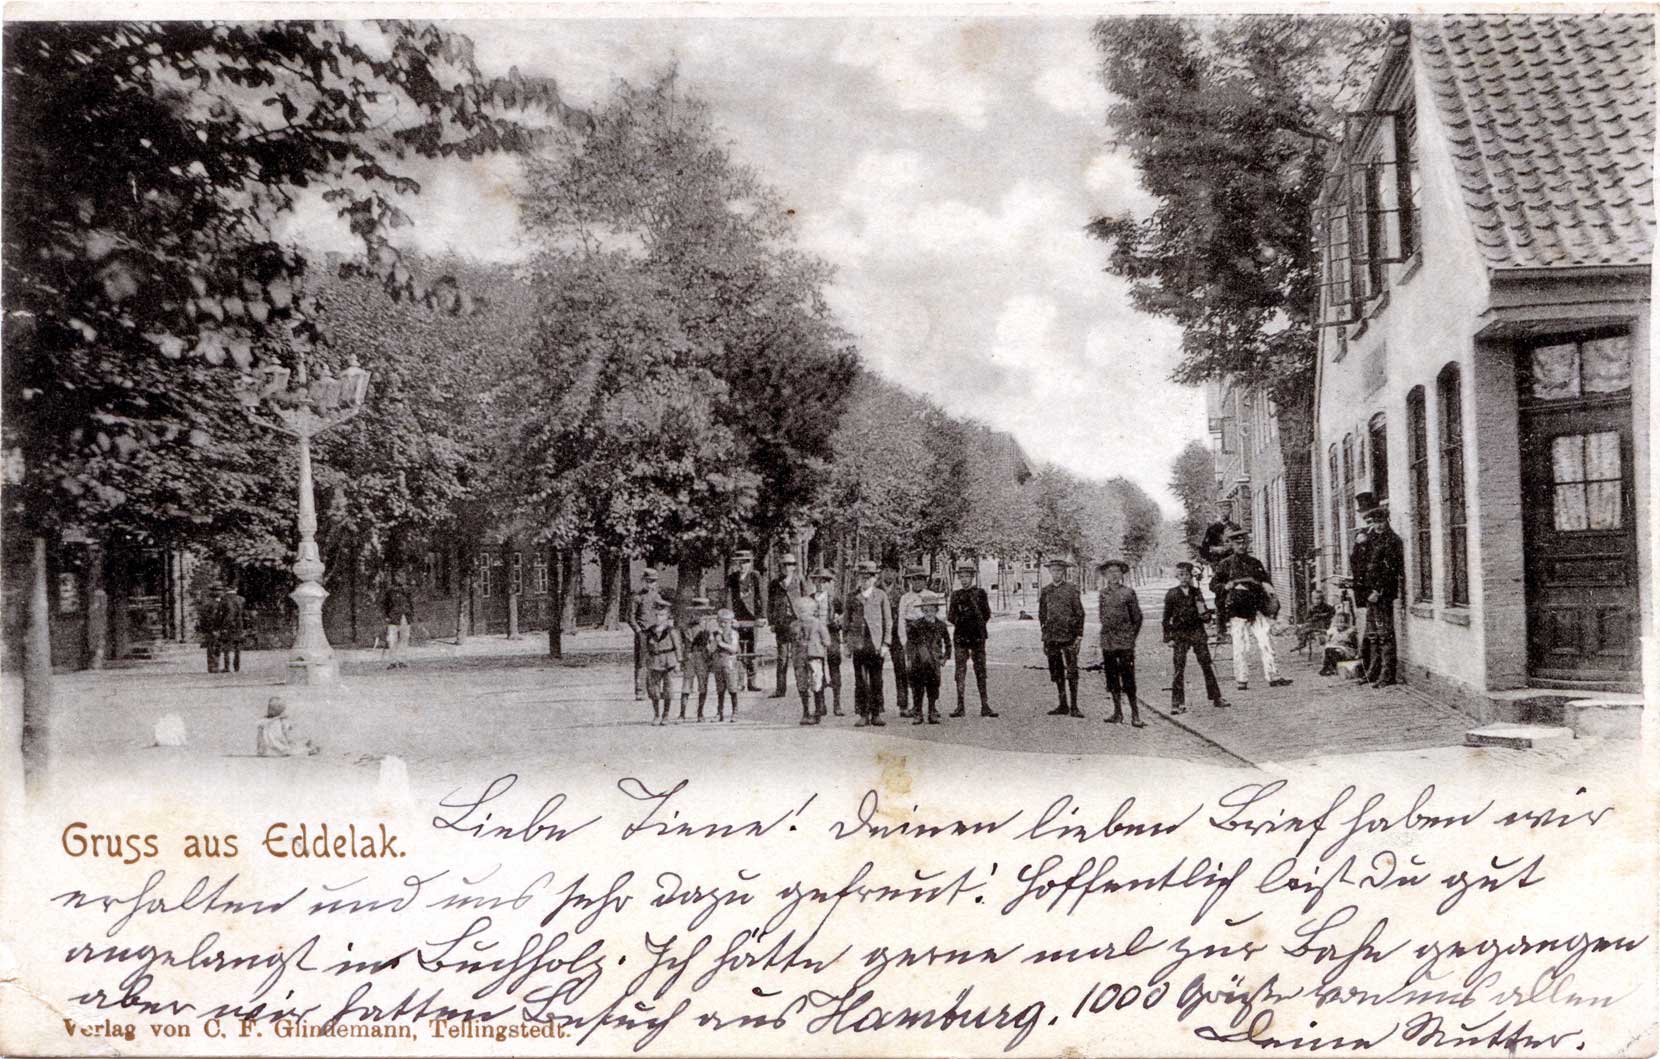 Gruss aus Eddelak.
Liebe Tiene! Deinen lieben Brief haben wir
erhalten und uns sehr dazu gefreut! Hoffentlich bist Du gut
angelangt in Buchholz. Ich hätte gerne mal zur Bahn gegangen
aber wir hatten Besuch aus Hamburg. 1000 Grüße von uns allen
Deine Mutter.
Verlag von C. F. Glindemann, Tellingstedt.